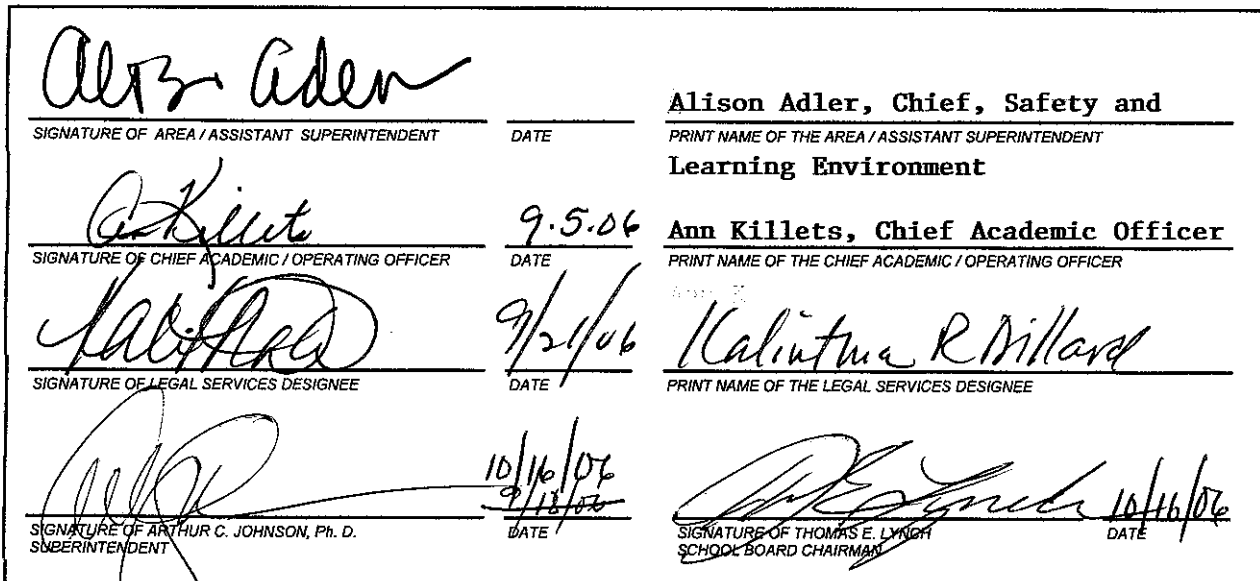 Alison Adler, Chief, Safety and
SIGNATURE OF AREA / ASSISTANT SUPERINTENDENT DATE PRINT NAME OF THE AREA / ASSISTANT SUPERINTENDENT
Learning Environment
Killets 9.5.06 Ann Killets, Chief Academic Officer
SIGNATURE OF CHIEF ACADEMIC / OPERATING OFFICER DATE PRINT NAME OF THE CHIEF ACADEMIC / OPERATING OFFICER
9/21/06 R Dillard
SIGNATURE OF LEGAL SERVICES DESIGNEE DATE PRINT NAME OF THE LEGAL SERVICES DESIGNEE
10/16/06
9/18/06 Lynch 10/16/06
SIGNATURE OF ARTHUR C. JOHNSON, Ph. D. DATE SIGNATURE OF THOMAS E. LYNCH DATE
SUPERINTENDENT SCHOOL BOARD CHAIRMAN